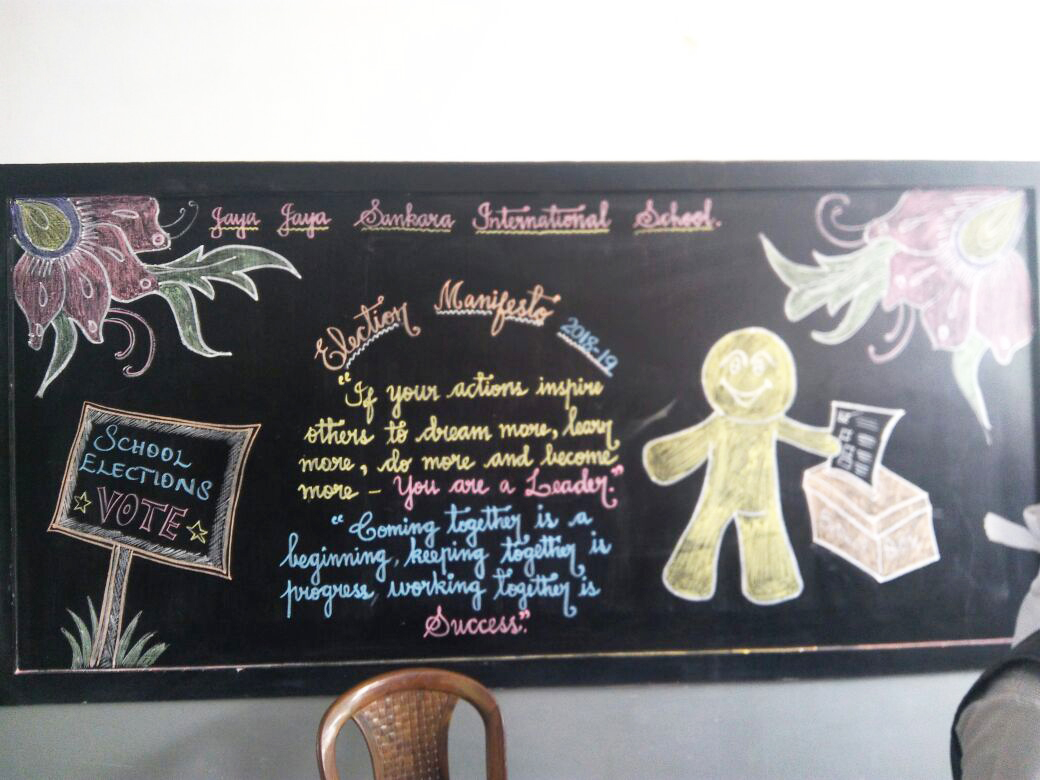 Jaya Jaya Sankara International School.
Election Manifesto 2018-19
"If your actions inspire
others to dream more, learn
more, do more and become
more - You are a Leader."
"Coming together is a
beginning, keeping together is
progress, working together is
Success."
SCHOOL
ELECTIONS
VOTE